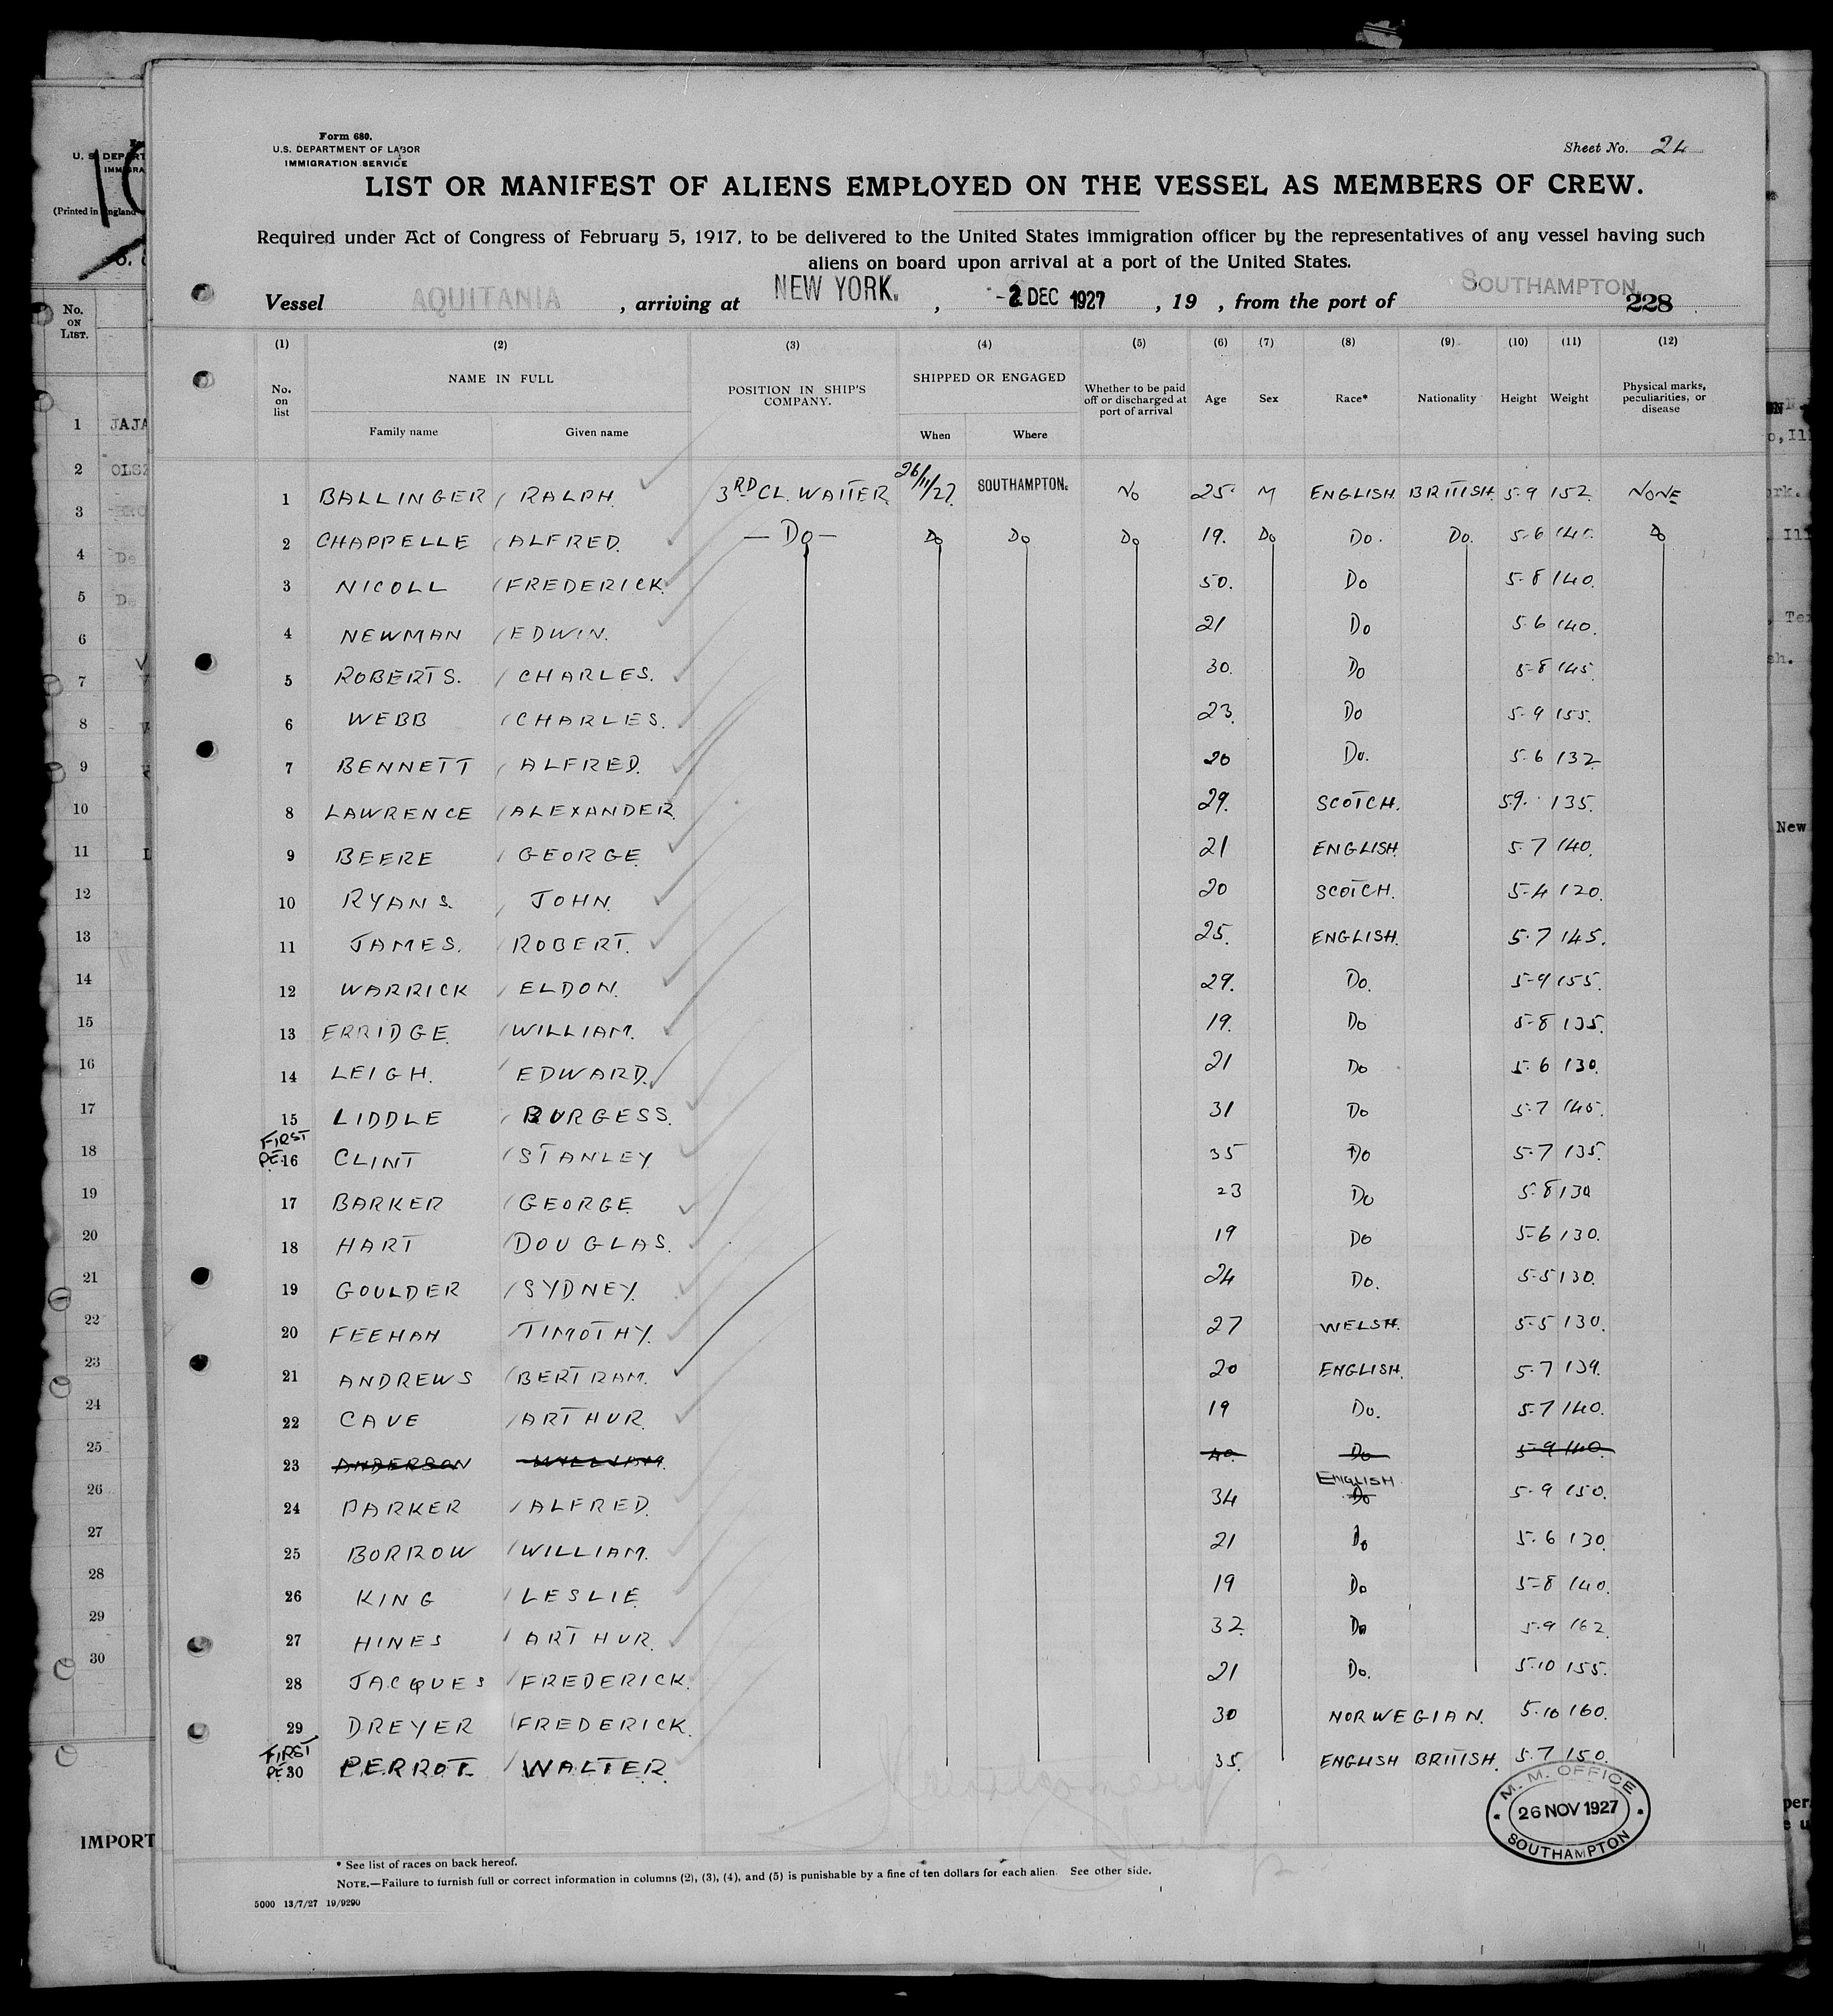 Form 680.
U.S. DEPARTMENT OF LABOR
IMMIGRATION SERVICE
Sheet No. 24
LIST OR MANIFEST OF ALIENS EMPLOYED ON THE VESSEL AS MEMBERS OF CREW.
Required under Act of Congress of February 5, 1917, to be delivered to the United States immigration officer by the representatives of any vessel having such
aliens on board upon arrival at a port of the United States.
Vessel AQUITANIA, arriving at NEW YORK., -2 DEC 1927, 19 , from the port of SOUTHAMPTON.
228
(1) (2) (3) (4) (5) (6) (7) (8) (9) (10) (11) (12)
No. on list NAME IN FULL POSITION IN SHIP'S COMPANY. SHIPPED OR ENGAGED Whether to be paid off or discharged at port of arrival Age Sex Race* Nationality Height Weight Physical marks, peculiarities, or disease
Family name Given name When Where
1 BALLINGER / RALPH. 3RD CL. WAITER 26/11/27. SOUTHAMPTON. No 25 M ENGLISH. BRITISH. 5-9 152. NONE
2 CHAPPELLE / ALFRED. — Do — Do Do Do 19. Do Do. Do. 5-6 140. Do
3 NICOLL / FREDERICK. 50. Do 5-8 140.
4 NEWMAN / EDWIN. 21 Do 5-6 140.
5 ROBERTS. / CHARLES. 30. Do 5-8 145.
6 WEBB / CHARLES. 23. Do 5-9 155.
7 BENNETT / ALFRED. 20 Do. 5-6 132
8 LAWRENCE / ALEXANDER. 29. SCOTCH. 5.9. 135.
9 BEERE / GEORGE. 21 ENGLISH. 5-7 140.
10 RYANS. / JOHN. 20 SCOTCH. 5-4 120.
11 JAMES. / ROBERT. 25. ENGLISH. 5-7 145.
12 WARRICK / ELDON. 29. Do. 5-9 155.
13 ERRIDGE. / WILLIAM. 19. Do 5-8 135.
14 LEIGH. / EDWARD. 21 Do 5-6 130.
15 LIDDLE / BURGESS. 31 Do 5-7 145.
FIRST
16 CLINT / STANLEY. 35 Do 5-7 135.
17 BARKER / GEORGE. 23 Do 5-8 130
18 HART / DOUGLAS. 19 Do 5-6 130.
19 GOULDER / SYDNEY. 24 Do. 5-5 130.
20 FEEHAN / TIMOTHY. 27 WELSH. 5-5 130.
21 ANDREWS / BERTRAM. 20 ENGLISH. 5-7 139.
22 CAVE / ARTHUR. 19 Do. 5-7 140.
23 ANDERSON WILLIAM. 40. Do 5-9 140.
ENGLISH
24 PARKER / ALFRED. 34 Do 5-9 150.
25 BORROW / WILLIAM. 21 Do 5-6 130.
26 KING / LESLIE 19 Do 5-8 140.
27 HINES / ARTHUR. 32. Do 5-9 162.
28 JACQUES / FREDERICK. 21 Do. 5-10 155.
29 DREYER / FREDERICK. 30 NORWEGIAN. 5-10 160.
FIRST
30 PERROT. / WALTER. 35. ENGLISH BRITISH. 5-7 150.
M. M. OFFICE
26 NOV 1927
SOUTHAMPTON
* See list of races on back hereof.
NOTE.—Failure to furnish full or correct information in columns (2), (3), (4), and (5) is punishable by a fine of ten dollars for each alien. See other side.
5000 13/7/27 19/9290
(Printed in England
No. ON LIST.
1 JAJA
2
3
4 De
5 De
6
7
8
9
10
11
12
13
14
15
16
17
18
19
20
21
22
23
24
25
26
27
28
29
30
IMPORT
New